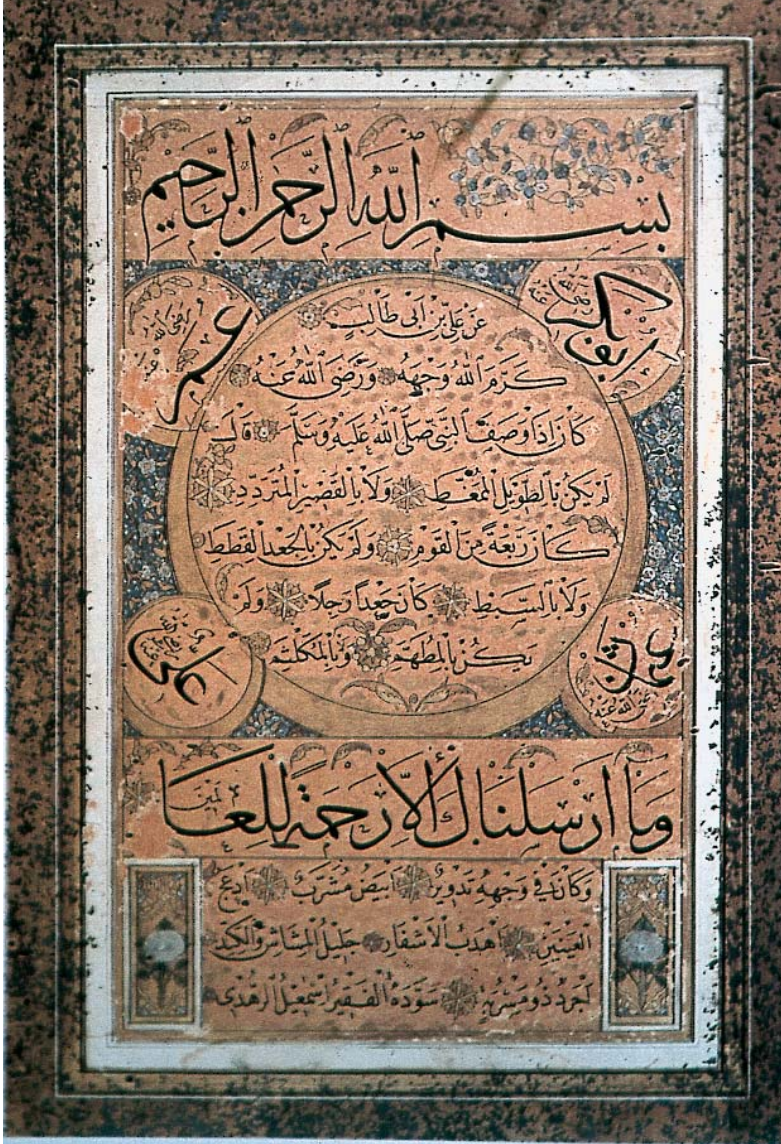 بسم الله الرحمن الرحيم
ابوبكر
رضى الله عنه
عمر
رضى الله عنه
عَنْ عَلِىِّ بْنِ اَبى طَالِبٍ
كَرَّمَ اللّٰهُ وَجْهَهُ وَرَضِىَ اللّٰهُ عَنْهُ
كَانَ اِذَا وَصَفَ النَّبِىَّ صَلَّى اللّٰهُ عَلَيْهِ وَسَلَّمَ قَالَ
لَمْ يَكُنْ بِالطَّوِيلِ الْمُمَّغِطِ وَلَا بِالْقَصِيرِ الْمُتَرَدِّدِ
كَانَ رَبْعَةً مِنَ الْقَوْمِ وَلَمْ يَكُنْ بِالْجَعْدِ الْقَطَطِ
وَلَا بِالسَّبِطِ كَانَ جَعْداً رَجِلًا وَلَمْ
يَكُنْ بِالْمُطَهَّمِ وَبِالْمُكَلْثَمِ
عثمان
رضى الله عنه
على
رضى الله عنه
وَمَا اَرْسَلْنَاكَ اِلَّا رَحْمَةً لِلْعَالمين
وَكَانَ فِى وَجْهِهِ تَدْوِيرٌ اَبْيَضُ مُشْرَبٌ اَدْعَجُ
الْعَيْنَيْنِ اَهْدَبُ الْاَشْفَارِ جَلِيلُ الْمُشَاشِ وَالْكَتَدِ
اَجْرَدُ ذُو مَسْرُبَةٍ سَوَّدَهُ الْفَقِيرُ اِسْمٰعِيلُ الزُّهْدِى